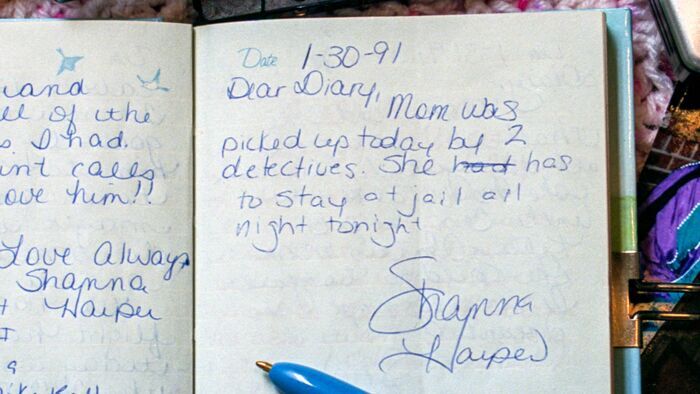 and
of the
s. I had.
calls
ove him!!
Love Always
Shanna
+ Harper
I
a
Date 1-30-91
Dear Diary,
Mom was
picked up today by 2
detectives. She had has
to stay at jail all
night tonight
Shanna
Harper